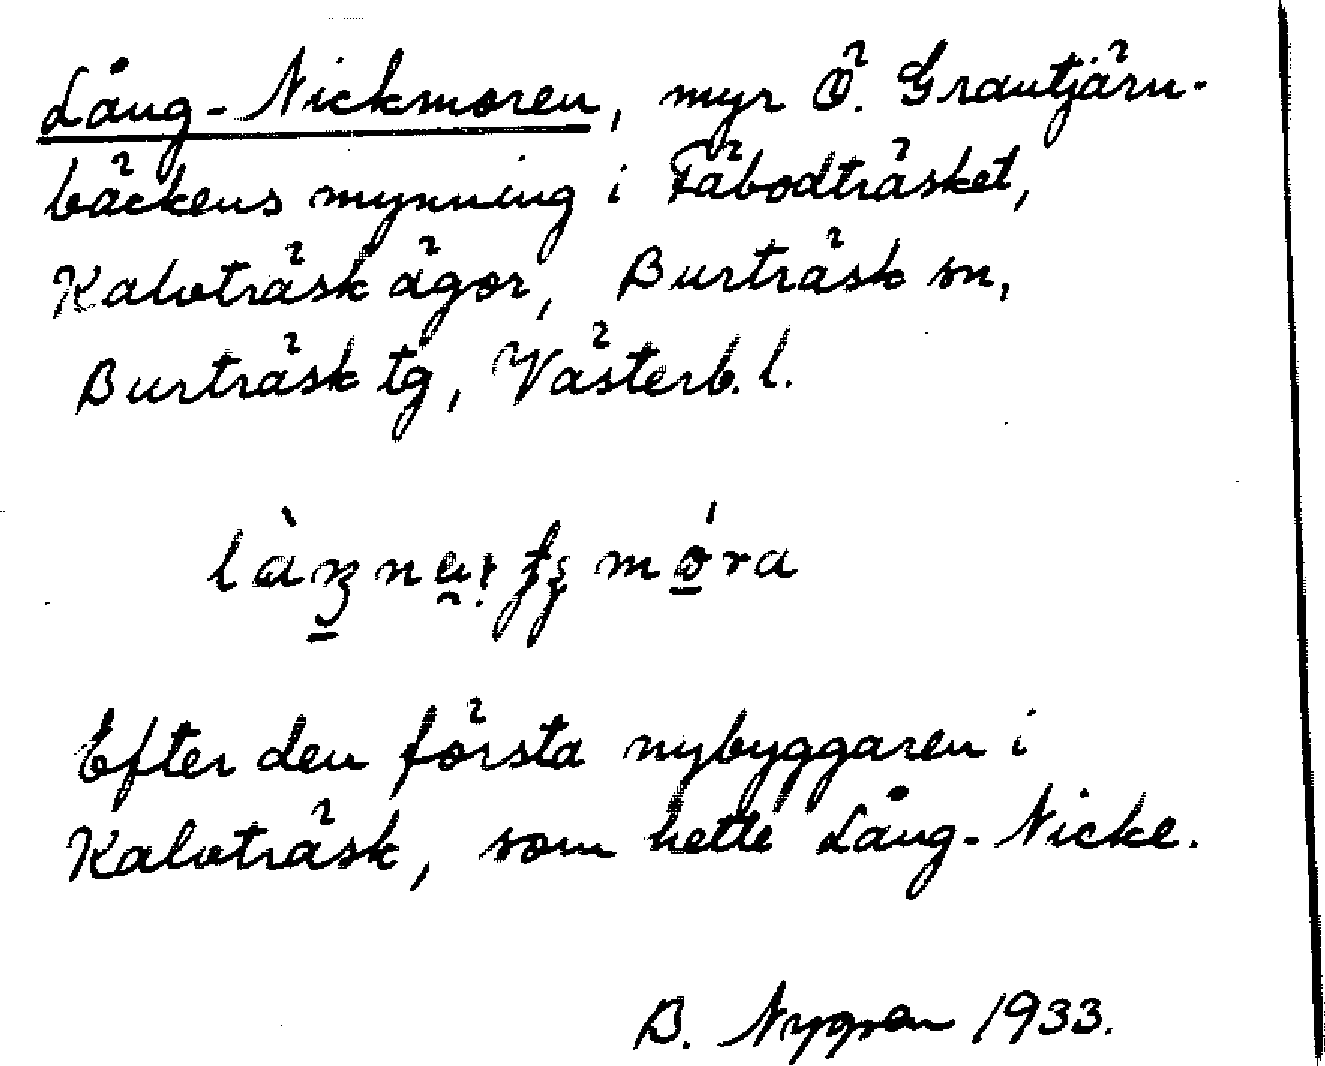 Lång-Nickmoren, myr Ö. Grantjärn-
bäckens mynning i Fäbodträsket,
Kalvträsk ägor, Burträsk sn,
Burträsk tg, Västerb. l.
Efter den första nybyggaren i
Kalvträsk, som hette Lång-Nicke.
B. Nygren 1933.